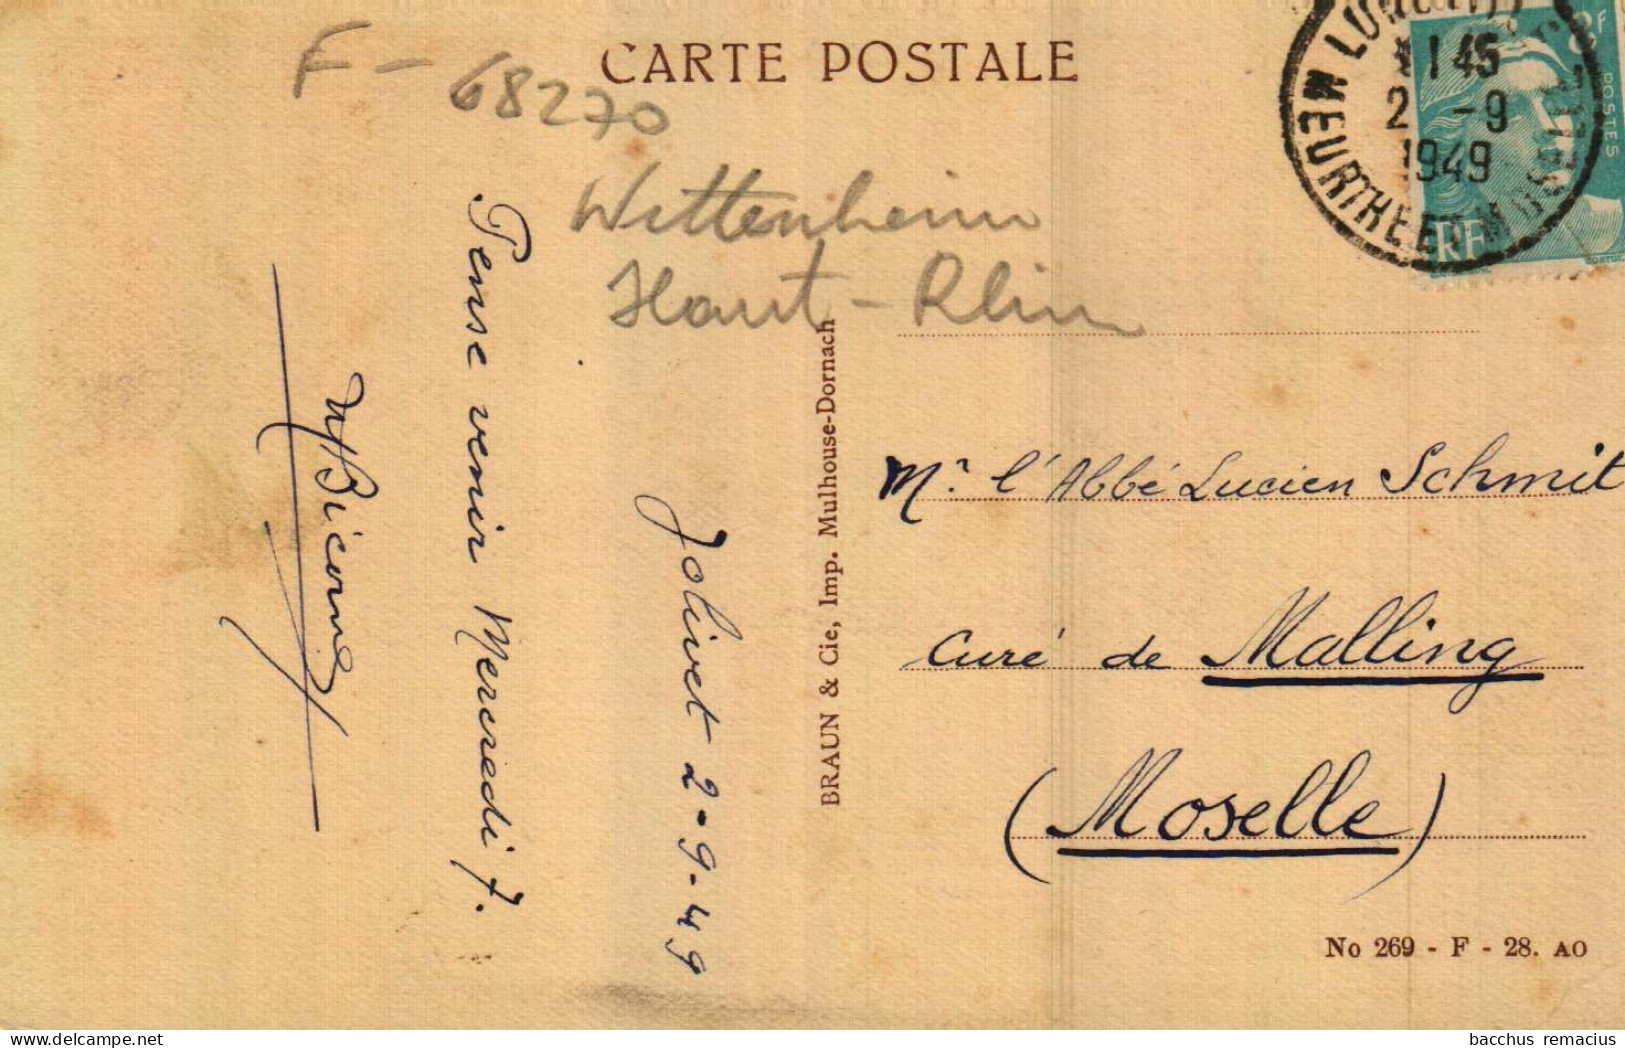 CARTE POSTALE
F - 68270
Wittenheim
Haut-Rhin
1 45
2 -9
1949
MEURTHE ET M
8F
POSTES
RF
Jolivet 2-9-49
Pense venir Mercredi 7.
BRAUN & Cie, Imp. Mulhouse-Dornach
Mr l'Abbé Lucien Schmit
Curé de Malling
(Moselle)
No 269 - F - 28. AO
bacchus remacius